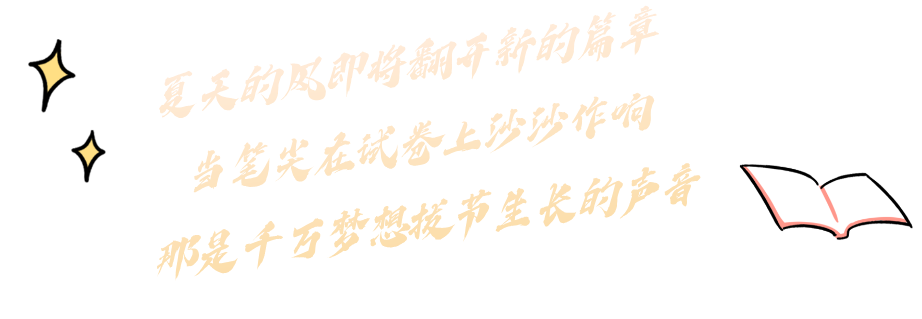 夏天的风即将翻开新的篇章
当笔尖在试卷上沙沙作响
那是千万梦想拔节生长的声音